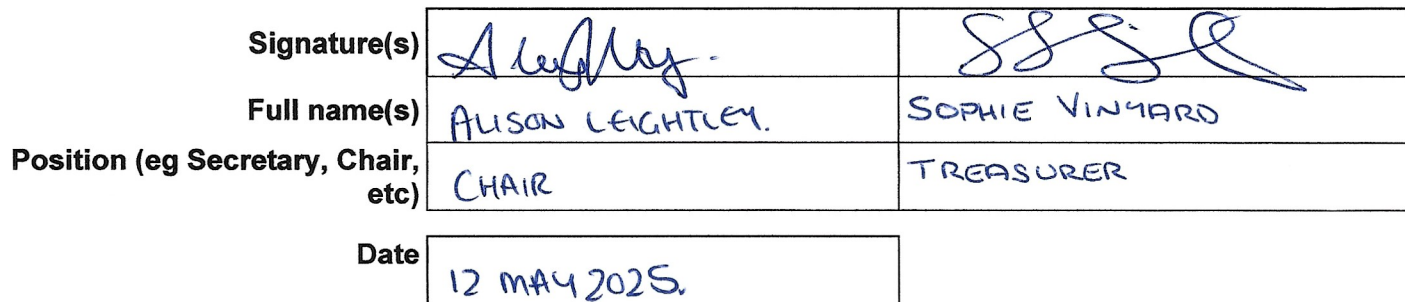 Signature(s)
Full name(s) ALISON LEIGHTLEY. SOPHIE VINYARD
Position (eg Secretary, Chair, etc) CHAIR TREASURER
Date 12 MAY 2025.